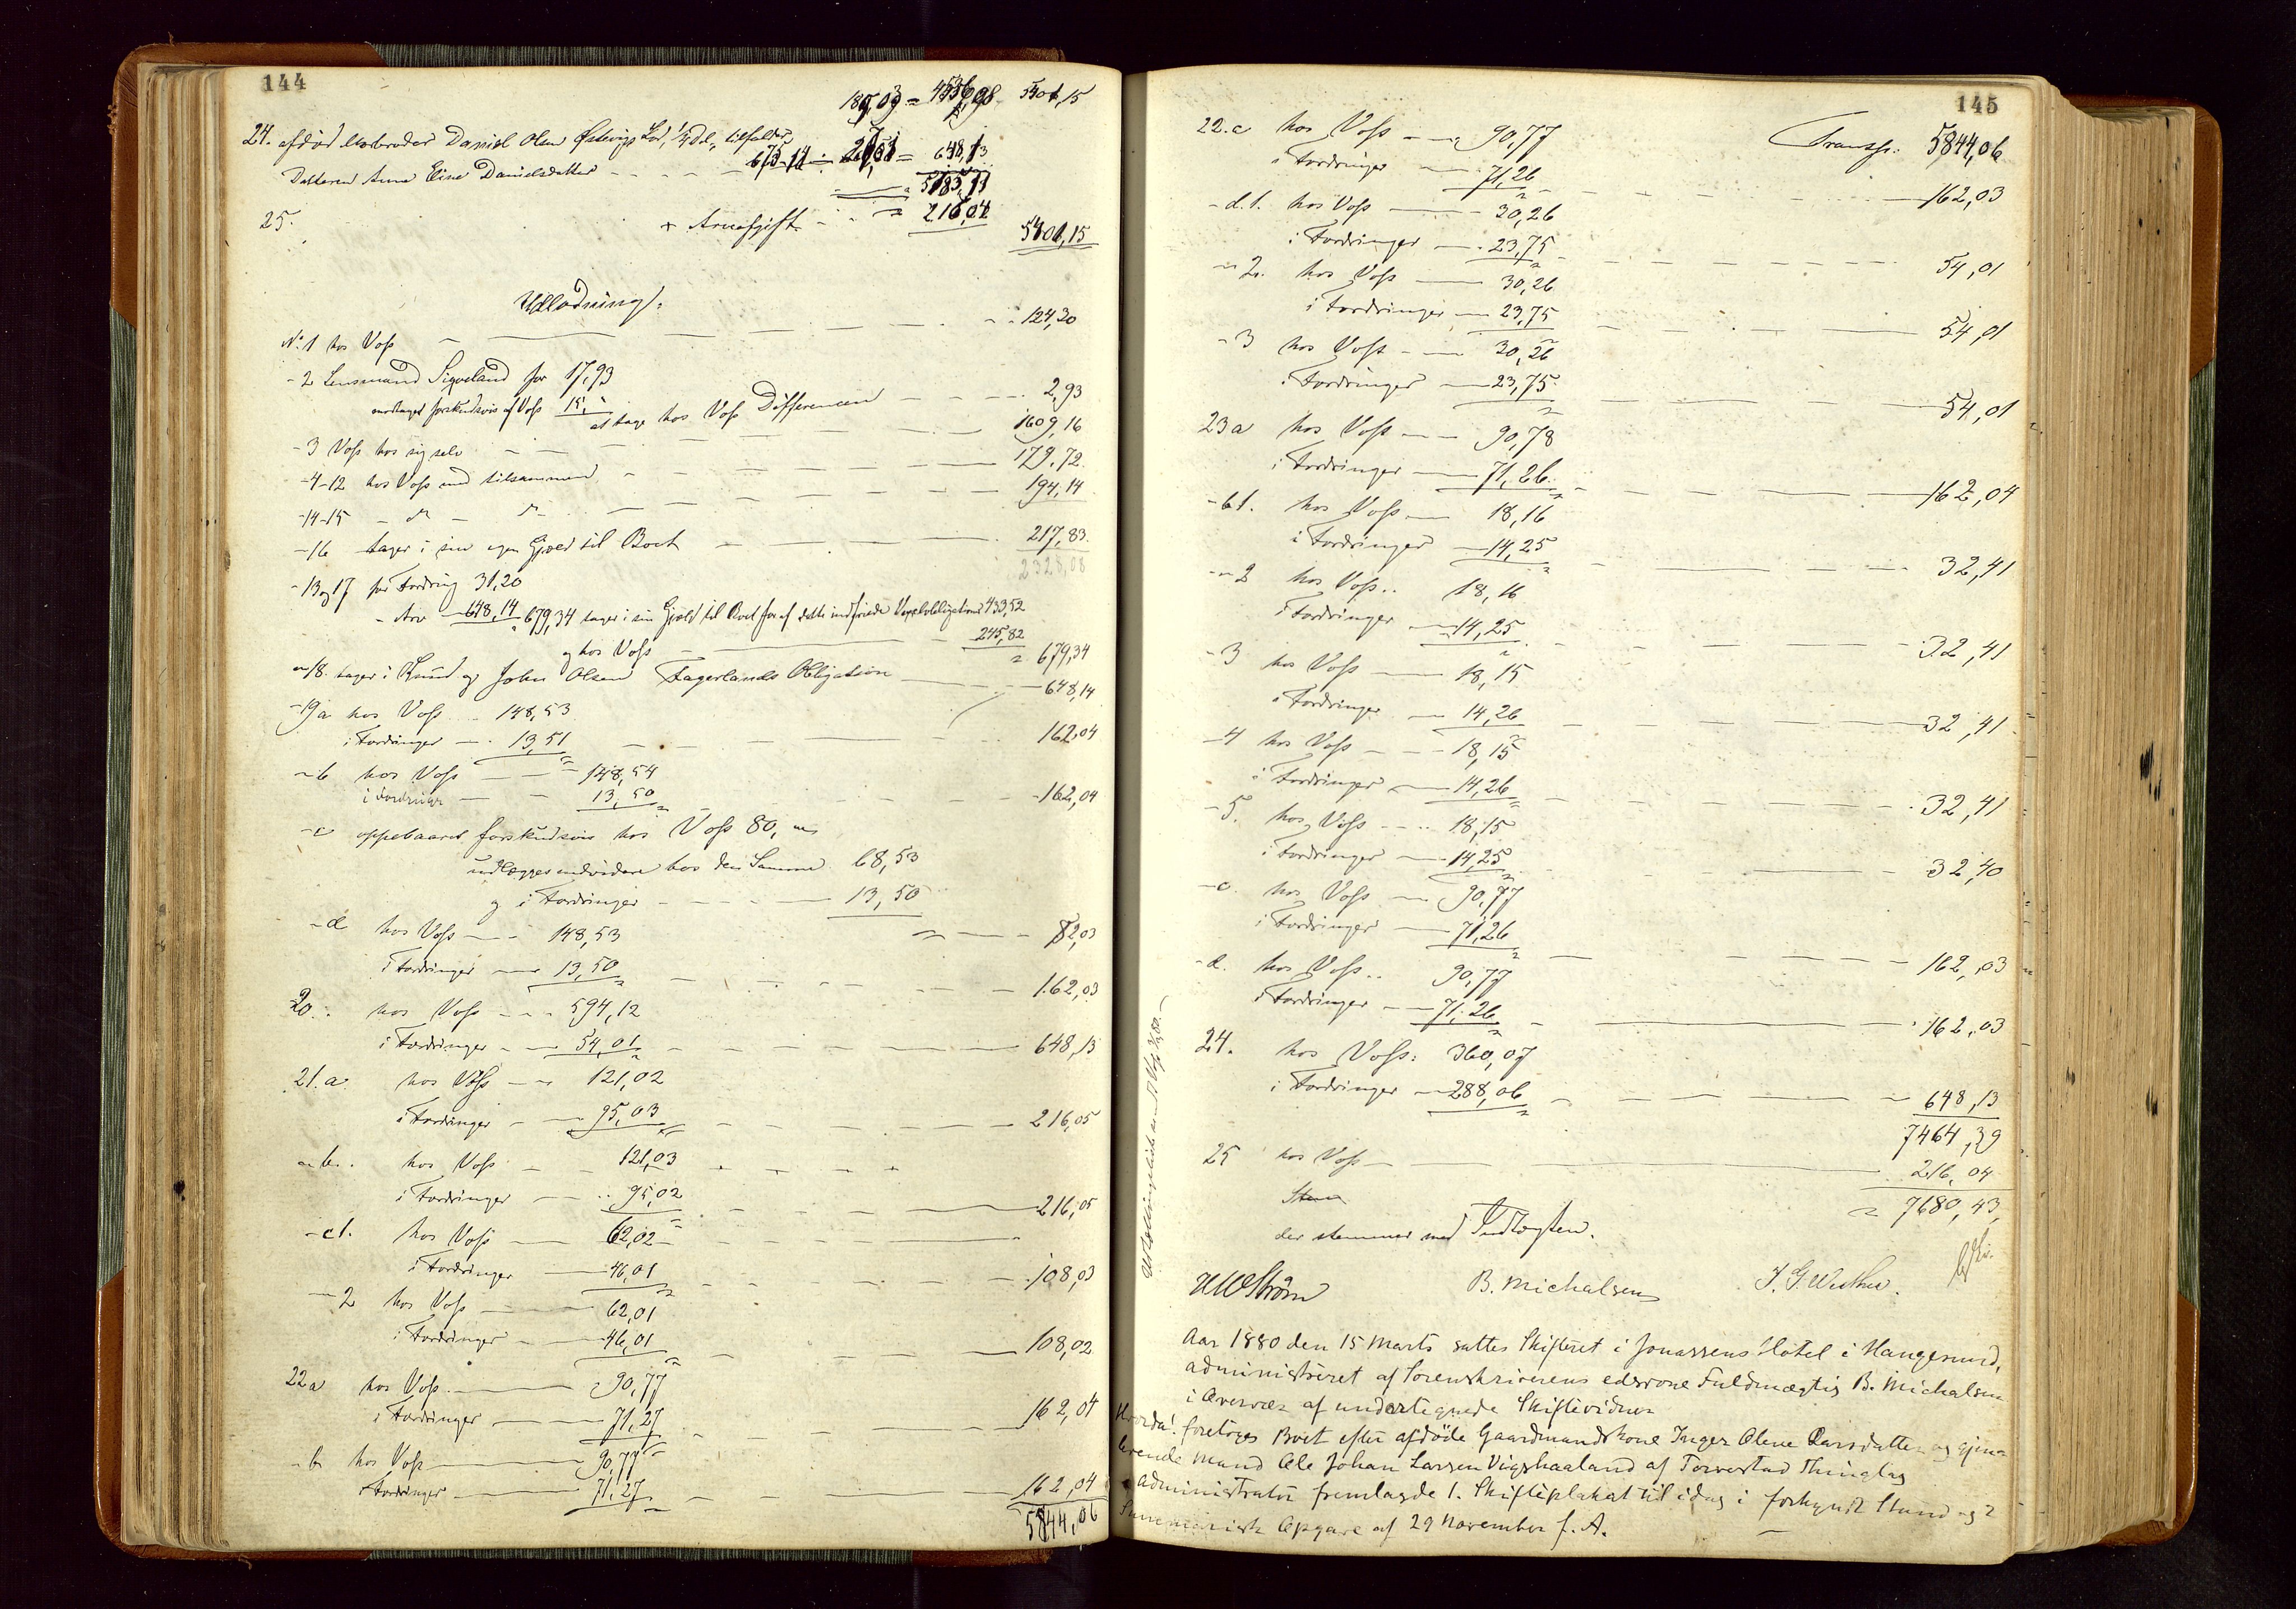 144
5401,15
24. afdød Morbroder Daniel Olsen Østevigs Lod, 1/4 Del, tilfalder
Datteren Anna Eline Danielsdatter 648,13
25. + Arveafgift 216,04
5401,15
Udlodning:
No 1 hos Voss 124,30
- 2 Lensmand Sigveland for 17,93
modtaget forskudsvis af Voss 15,
at tage hos Voss Differencen 2,93
- 3 Voss hos sig selv 1609,16
- 4-12 hos Voss med tilsammen 179,72
- 14-15 - do - do 194,14
- 16 tager i sin egen Gjæld til Boet 217,83
2328,08
- 13 og 17 for Fordring 31,20
- Arv 648,14 = 679,34 tager i sin Gjæld til Boet for af dette indfriede Vexelobligation 433,52
og hos Voss 245,82 = 679,34
- 18. tager i Knud og John Olsen Fagerlands Obligation 648,14
- 19 a hos Voss 148,53
i Fordringer 13,51 162,04
- b hos Voss 148,54
i Fordringer 13,50 162,04
- c oppebaaret forskudsvis hos Voss 80,
udlægges endvidere hos den Samme 68,53
og i Fordringer 13,50
= 82,03
- d hos Voss 148,53
i Fordringer 13,50 162,03
20. hos Voss 594,12
i Fordringer 54,01 648,13
21. a hos Voss 121,02
i Fordringer 95,03 216,05
- b. hos Voss 121,03
i Fordringer 95,02 216,05
- c 1. hos Voss 62,02
i Fordringer 46,01 108,03
- 2 hos Voss 62,01
i Fordringer 46,01 108,02
22 a hos Voss 90,77
i Fordringer 71,27 162,04
- b hos Voss 90,77
i Fordringer 71,27 162,04
5844,06
145
Transp: 5844,06
22. c hos Voss 90,77
i Fordringer 71,26 162,03
- d. 1. hos Voss 30,26
i Fordringer 23,75 54,01
- 2. hos Voss 30,26
i Fordringer 23,75 54,01
- 3 hos Voss 30,26
i Fordringer 23,75 54,01
23 a hos Voss 90,78
i Fordringer 71,26 162,04
- b 1. hos Voss 18,16
i Fordringer 14,25 32,41
- 2 hos Voss 18,16
i Fordringer 14,25 32,41
- 3 hos Voss 18,15
i Fordringer 14,26 32,41
- 4 hos Voss 18,15
i Fordringer 14,26 32,41
- 5. hos Voss 18,15
i Fordringer 14,25 32,40
- c. hos Voss 90,77
i Fordringer 71,26 162,03
- d. hos Voss 90,77
i Fordringer 71,26 162,03
24. hos Voss: 360,07
i Fordringer 288,06 648,13
7464,39
25 hos Voss 216,04
= 7680,43
der stemmer med Indtægten.
B. Michalsen
Aar 1880 den 15 Marts sattes Skifteret i Jonassens Hotel i Haugesund,
administreret af Sorenskriverens edsvorne Fuldmægtig B. Michalsen
i Overvær af undertegnede Skiftevidner
Hvorda! foretoges Boet efter afdøde Gaardmandskone Inger Olene Larsdatter og gjen-
levende Mand Ole Johan Larsen Vigshaaland af Torvestad Thinglag
Administrator fremlagde 1. Skifteplakat til idag i forkyndt Stand og 2
Summarisk Opgave af 29 November f. A.